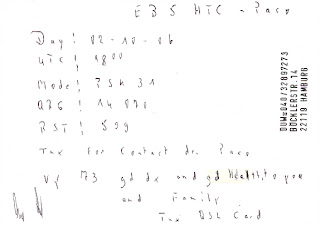 EB5 HTC - Paco
Day: 02-10-06
UTC: 0800
Mode: PSK 31
QRG: 14 070
RST: 599
Tnx for Contact dr. Paco
Vy 73 gd dx and gd Health to you
and Family
Tnx QSL Card
DOM=040/32897273
BÖCKLERSTR.14
22119 HAMBURG